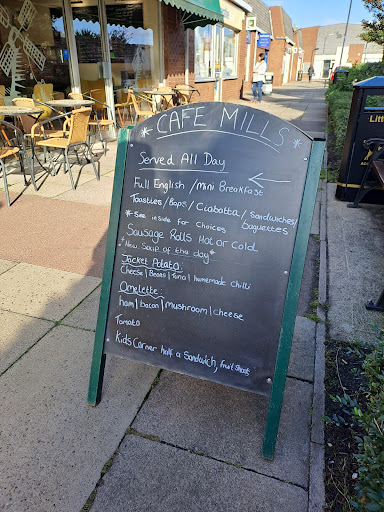 * CAFE MILLS *
Served All Day
Full English / mini Breakfast
Toasties / Baps / Ciabatta / Sandwiches /
* See inside for choices baguettes
Sausage Rolls Hot or Cold
* New Soup of the day *
Jacket Potato:
Cheese | Beans | Tuna | homemade chilli
Omelette:
ham | bacon | mushroom | cheese
Tomato
Kids Corner half a Sandwich, fruit shoot
Litt